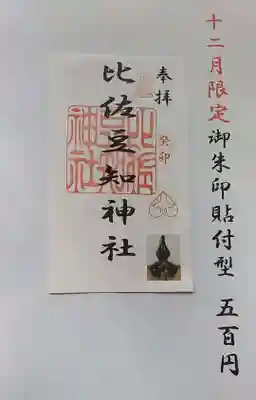 十二月限定御朱印貼付型 五百円
奉拝
癸卯
比佐豆知神社